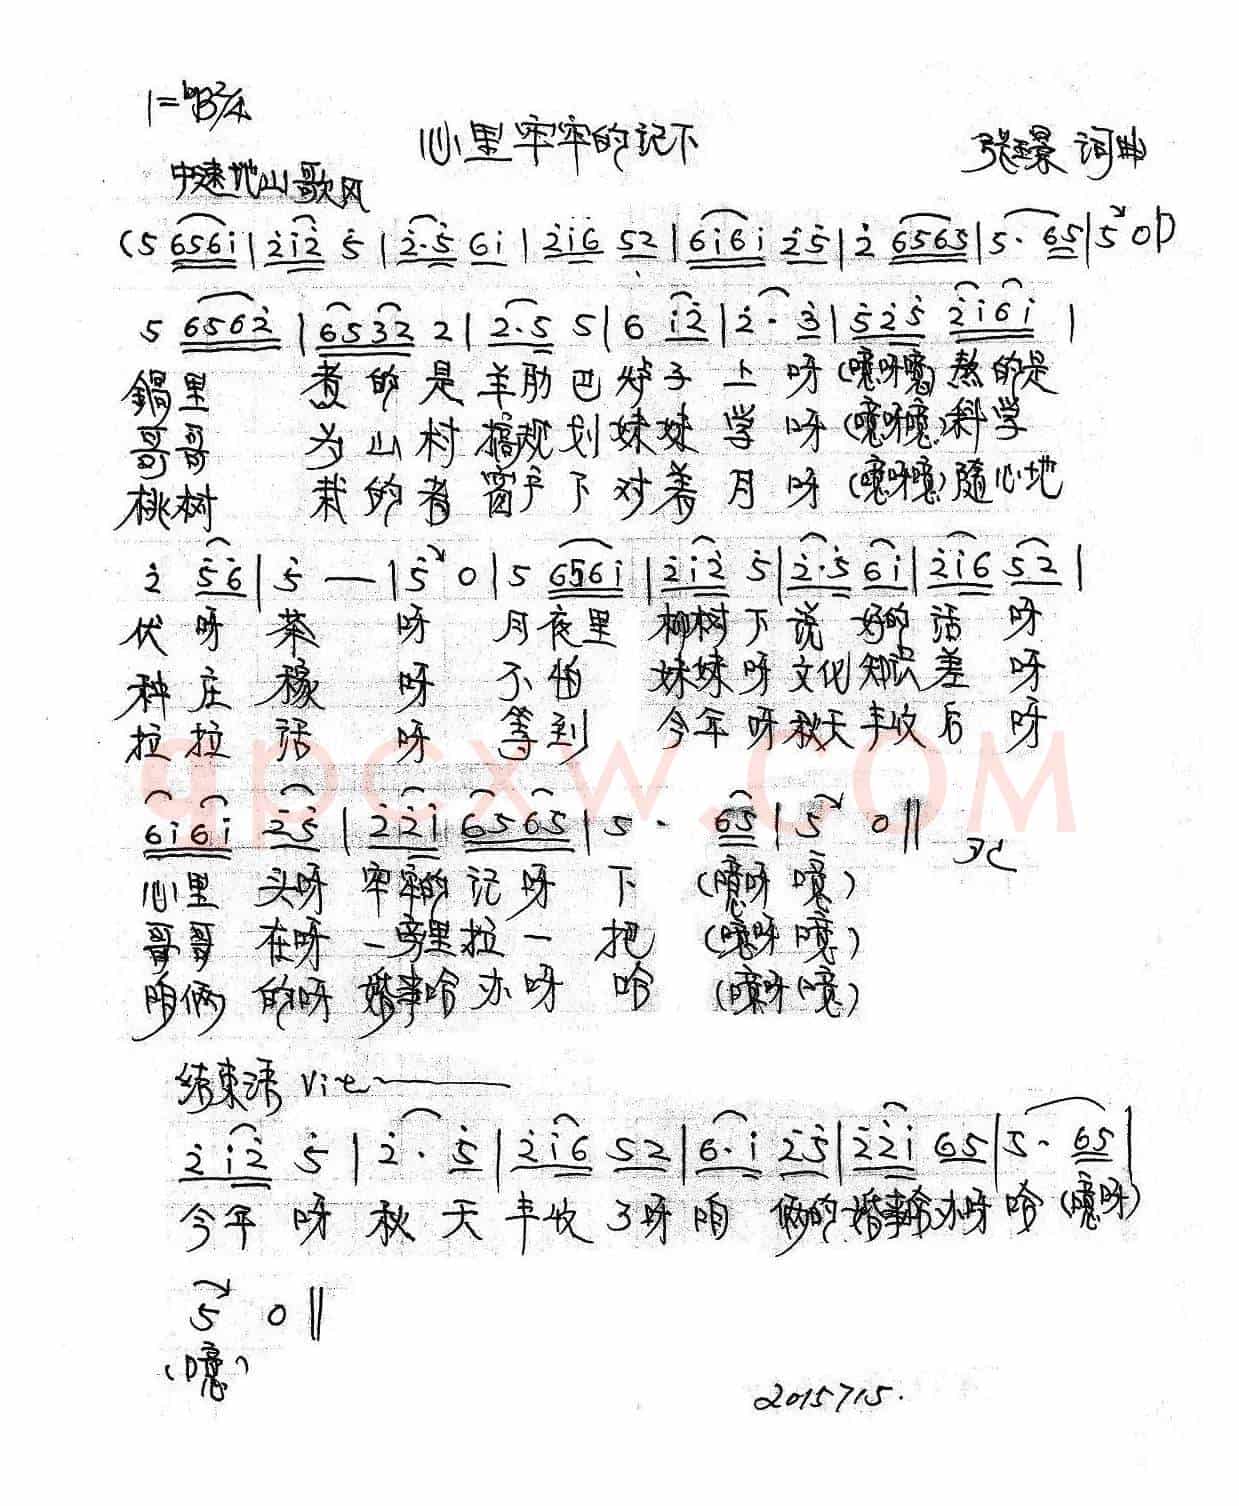 1=ᵇB 2/4
心里牢牢的记下
张景 词曲
中速地山歌风
(5 656i|2i2 5|2·5 6i|2i6 52|6i6i 25|2 6565|5· 65|5 0)
5 6562|6532 2|2·5 5|6 i2|2· 3|525 2i6i|
锅里 煮的是羊肋巴炉子上呀(噫呀噫)熬的是
哥哥 为山村搞规划妹妹学呀(噫呀噫)科学
桃树 栽的者窗户下对着月呀(噫呀噫)随心地
2 56|5 —|5 0|5 6561|2i2 5|2·5 6i|2i6 52|
伏呀茶 呀 月夜里 柳树下说好的话 呀
种庄稼 呀 不怕 妹妹呀文化知识差 呀
拉拉话 呀 等到 今年呀秋天丰收后 呀
6i6i 25|22i 6565|5· 65|5 0‖
心里 头呀 牢牢的记呀 下 (噫呀 噫)
哥哥 在呀 一旁里拉一 把 (噫呀 噫)
咱俩 的呀 婚事哈办呀 哈 (噫呀 噫)
结束语 Vit
2i2 5|2· 5|2i6 52|6·i 25|22i 65|5· 65|
今年 呀 秋 天 丰收 了呀 咱 俩的 婚事哈办呀 哈 (噫呀)
5 0‖
(噫)
2015715.
qpcxw.com